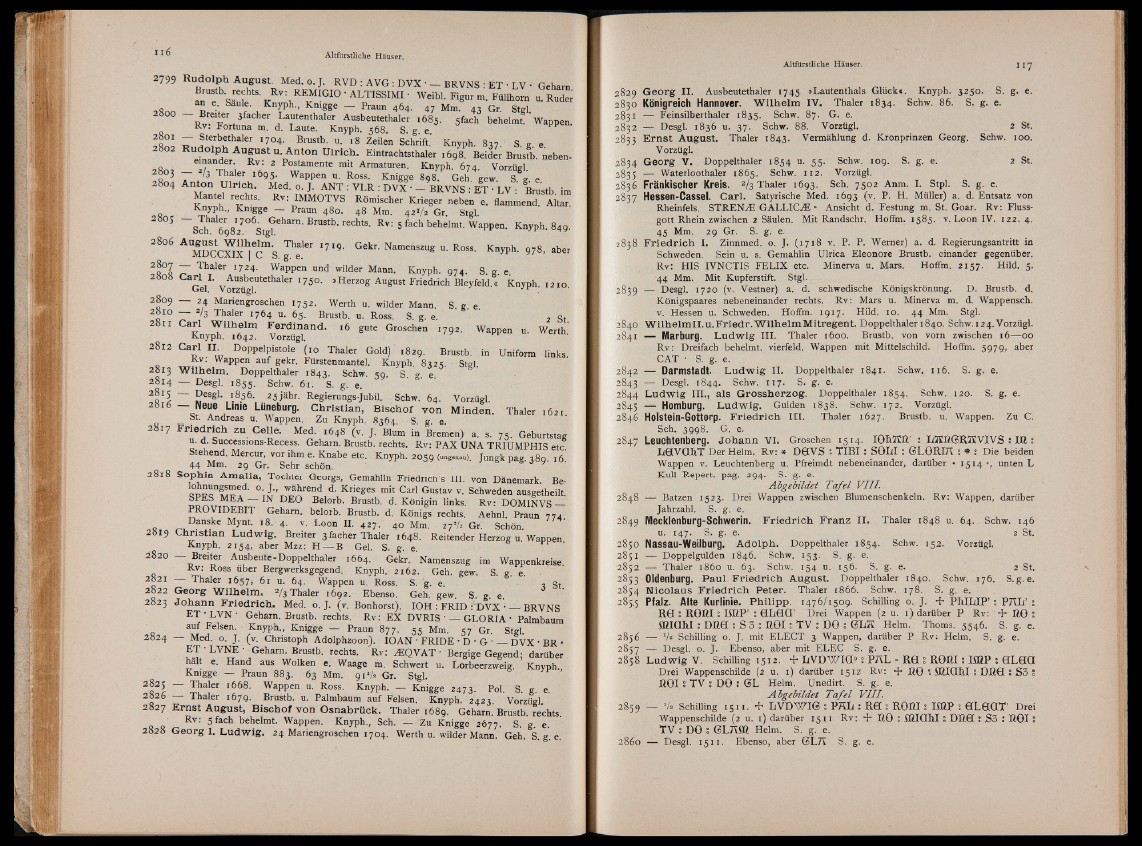 116
Altfürstliche Häuser.
2799 Rudolph August. Med. o. J. RVD : AVG : DVX · — BRVNS : ET · LV · Geharn.
Brustb. rechts. Rv: REMIGIO · ALTISSIMI · Weibl. Figur m. Füllhorn u. Ruder
an e. Säule. Knyph., Knigge — Praun 464. 47 Mm. 43 Gr. Stgl.
2800 — Breiter 3facher Lautenthaler Ausbeutethaler 1685. 5fach behelmt. Wappen.
Rv: Fortuna m. d. Laute. Knyph. 568. S. g. e.
2801 — Sterbethaler 1704. Brustb. u. 18 Zeilen Schrift. Knyph. 837. S. g. e.
2802 Rudolph August u. Anton Ulrich. Eintrachtsthaler 1698. Beider Brustb. neben-
einander. Rv: 2 Postamente mit Armaturen. Knyph. 674. Vorzügl.
2803 — ²/3 Thaler 1695. Wappen u. Ross. Knigge 898. Geh. gew. S. g. e.
2804 Anton Ulrich. Med. o. J. ANT : VLR : DVX · — BRVNS : ET · LV : Brustb. im
Mantel rechts. Rv: IMMOTVS Römischer Krieger neben e. flammend. Altar.
Knyph., Knigge — Praun 480. 48 Mm. 42¹/2 Gr. Stgl.
2805 — Thaler 1706. Geharn. Brustb. rechts. Rv: 5 fach behelmt. Wappen. Knyph. 849.
Sch. 6982. Stgl.
2806 August Wilhelm. Thaler 1719. Gekr. Namenszug u. Ross. Knyph. 978, aber
MDCCXIX | C S. g. e.
2807 — Thaler 1724. Wappen und wilder Mann. Knyph. 974. S. g. e.
2808 Carl I. Ausbeutethaler 1750. »Herzog August Friedrich Bleyfeld.« Knyph. 1210.
Gel. Vorzügl.
2809 — 24 Mariengroschen 1752. Werth u. wilder Mann. S. g. e.
2810 — ²/3 Thaler 1764 u. 65. Brustb. u. Ross. S. g. e. 2 St.
2811 Carl Wilhelm Ferdinand. 16 gute Groschen 1792. Wappen u. Werth.
Knyph. 1642. Vorzügl.
2812 Carl II. Doppelpistole (10 Thaler Gold) 1829. Brustb. in Uniform links.
Rv: Wappen auf gekr. Fürstenmantel. Knyph. 8325. Stgl.
2813 Wilhelm. Doppelthaler 1843. Schw. 59. S. g. e.
2814 — Desgl. 1855. Schw. 61. S. g. e.
2815 — Desgl. 1856. 25jähr. Regierungs-Jubil. Schw. 64. Vorzügl.
2816 — Neue Linie Lüneburg. Christian, Bischof von Minden. Thaler 1621.
St. Andreas u. Wappen. Zu Knyph. 8364. S. g. e.
2817 Friedrich zu Celle. Med. 1648 (v. J. Blum in Bremen) a. s. 75. Geburtstag
u. d. Successions-Recess. Geharn. Brustb. rechts. Rv: PAX UNA TRIUMPHIS etc.
Stehend. Mercur, vor ihm e. Knabe etc. Knyph. 2059 (ungenau). Jungk pag. 389. 16.
44 Mm. 29 Gr. Sehr schön.
2818 Sophia Amalia, Tochter Georgs, Gemahlin Friedrich's III. von Dänemark. Be-
lohnungsmed. o. J., während d. Krieges mit Carl Gustav v. Schweden ausgetheilt.
SPES MEA — IN DEO Belorb. Brustb. d. Königin links. Rv: DOMINVS —
PROVIDEBIT Geharn. belorb. Brustb. d. Königs rechts. Aehnl. Praun 774.
Danske Mynt. 18. 4. v. Loon II. 427. 40 Mm. 27¹/2 Gr. Schön.
2819 Christian Ludwig. Breiter 3facher Thaler 1648. Reitender Herzog u. Wappen.
Knyph. 2154, aber Mzz: H — B Gel. S. g. e.
2820 — Breiter Ausbeute-Doppelthaler 1664. Gekr. Namenszug im Wappenkreise.
Rv: Ross über Bergwerksgegend. Knyph. 2162. Geh. gew. S. g. e.
2821 — Thaler 1657, 61 u. 64. Wappen u. Ross. S. g. e. 3 St.
2822 Georg Wilhelm. ²/3 Thaler 1692. Ebenso. Geh. gew. S. g. e.
2823 Johann Friedrich. Med. o. J. (v. Bonhorst). IOH : FRID : DVX · — BRVNS
ET · LVN · Geharn. Brustb. rechts. Rv: EX DVRIS · — GLORIA · Palmbaum
auf Felsen. Knyph., Knigge — Praun 877. 55 Mm. 57 Gr. Stgl.
2824 — Med. o. J. (v. Christoph Adolphzoon). IOAN · FRIDE · D · G · — DVX · BR ·
ET · LVNE · Geharn. Brustb. rechts. Rv: ÆQVAT · Bergige Gegend; darüber
hält e. Hand aus Wolken e. Waage m. Schwert u. Lorbeerzweig. Knyph.,
Knigge — Praun 883. 63 Mm. 91¹/2 Gr. Stgl.
2825 — Thaler 1668. Wappen u. Ross. Knyph. — Knigge 2473. Pol. S. g. e.
2826 — Thaler 1679. Brustb. u. Palmbaum auf Felsen. Knyph. 2423. Vorzügl.
2827 Ernst August, Bischof von Osnabrück. Thaler 1689. Geharn. Brustb. rechts.
Rv: 5 fach behelmt. Wappen. Knyph., Sch. — Zu Knigge 2677. S. g. e.
2828 Georg I. Ludwig. 24 Mariengroschen 1704. Werth u. wilder Mann. Geh. S. g. e.
Altfürstliche Häuser.
117
2829 Georg II. Ausbeutethaler 1745 »Lautenthals Glück«. Knyph. 3250. S. g. e.
2830 Königreich Hannover. Wilhelm IV. Thaler 1834. Schw. 86. S. g. e.
2831 — Feinsilberthaler 1835. Schw. 87. G. e.
2832 — Desgl. 1836 u. 37. Schw. 88. Vorzügl. 2 St.
2833 Ernst August. Thaler 1843. Vermählung d. Kronprinzen Georg. Schw. 100.
Vorzügl.
2834 Georg V. Doppelthaler 1854 u. 55. Schw. 109. S. g. e. 2 St.
2835 — Waterloothaler 1865. Schw. 112. Vorzügl.
2836 Fränkischer Kreis. ²/3 Thaler 1693. Sch. 7502 Anm. I. Stpl. S. g. e.
2837 Hessen-Cassel. Carl. Satyrische Med. 1693 (v. P. H. Müller) a. d. Entsatz von
Rheinfels. STRENÆ GALLICÆ · Ansicht d. Festung m. St. Goar. Rv: Fluss-
gott Rhein zwischen 2 Säulen. Mit Randschr. Hoffm. 1585. v. Loon IV. 122. 4.
45 Mm. 29 Gr. S. g. e.
2838 Friedrich I. Zinnmed. o. J. (1718 v. P. P. Werner) a. d. Regierungsantritt in
Schweden. Sein u. s. Gemahlin Ulrica Eleonore Brustb. einander gegenüber.
Rv: HIS IVNCTIS FELIX etc. Minerva u. Mars. Hoffm. 2157. Hild. 5.
44 Mm. Mit Kupferstift. Stgl.
2839 — Desgl. 1720 (v. Vestner) a. d. schwedische Königskrönung. D. Brustb. d.
Königspaares nebeneinander rechts. Rv: Mars u. Minerva m. d. Wappensch.
v. Hessen u. Schweden. Hoffm. 1917. Hild. 10. 44 Mm. Stgl.
2840 Wilhelm II. u. Friedr. Wilhelm Mitregent. Doppelthaler 1840. Schw. 124. Vorzügl.
2841 — Marburg. Ludwig III. Thaler 1600. Brustb. von vorn zwischen 16—00
Rv: Dreifach behelmt. vierfeld. Wappen mit Mittelschild. Hoffm. 5979, aber
CAT · S. g. e.
2842 — Darmstadt. Ludwig II. Doppelthaler 1841. Schw. 116. S. g. e.
2843 — Desgl. 1844. Schw. 117. S. g. e.
2844 Ludwig III., als Grossherzog. Doppelthaler 1854. Schw. 120. S. g. e.
2845 — Homburg. Ludwig. Gulden 1838. Schw. 172. Vorzügl.
2846 Holstein-Gottorp. Friedrich III. Thaler 1627. Brustb. u. Wappen. Zu C.
Sch. 3998. G. e.
2847 Leuchtenberg. Johann VI. Groschen 1514. IOhAN' : LANGRAVIVS : IN :
LEVOhT Der Helm. Rv: * DEVS : TIBI : SOLI : GLORIA : * : Die beiden
Wappen v. Leuchtenberg u. Pfreimdt nebeneinander, darüber • 1514 •, unten L
Kull Repert. pag. 294. S. g. e.
Abgebildet Tafel VIII.
2848 — Batzen 1523. Drei Wappen zwischen Blumenschenkeln. Rv: Wappen, darüber
Jahrzahl. S. g. e.
2849 Mecklenburg-Schwerin. Friedrich Franz II. Thaler 1848 u. 64. Schw. 146
u. 147. S. g. e. 2 St.
2850 Nassau-Weilburg. Adolph. Doppelthaler 1854. Schw. 152. Vorzügl.
2851 — Doppelgulden 1846. Schw. 153. S. g. e.
2852 — Thaler 1860 u. 63. Schw. 154 u. 156. S. g. e. 2 St.
2853 Oldenburg. Paul Friedrich August. Doppelthaler 1840. Schw. 176. S. g. e.
2854 Nicolaus Friedrich Peter. Thaler 1866. Schw. 178. S. g. e.
2855 Pfalz. Alte Kurlinie. Philipp. 1476/1509. Schilling o. J. + PhILIP' : PAL' :
RE : ROMI : IMP' : ELEC' Drei Wappen (2 u. 1) darüber P Rv: + NO :
MIChI : DNE : S 3 : NOI : TV : DO : GLA Helm. Thoms. 5546. S. g. e.
2856 — ¹/2 Schilling o. J. mit ELECT 3 Wappen, darüber P Rv: Helm. S. g. e.
2857 — Desgl. o. J. Ebenso, aber mit ELEC S. g. e.
2858 Ludwig V. Schilling 1512. + LVDWIG' : PAL · RE : ROMI : IMP : ELEC
Drei Wappenschilde (2 u. 1) darüber 1512 Rv: + NO : MIChI : DNE : S3 :
NOI : TV : DO : GL Helm. Unedirt. S. g. e.
Abgebildet Tafel VIII.
2859 — ¹/2 Schilling 1511. + LVDWIG : PAL : RE : ROMI : IMP : ELECT' Drei
Wappenschilde (2 u. 1) darüber 1511 Rv: + NO : MIChI : DNE : S3 : NOI :
TV : DO : GLAM Helm. S. g. e.
2860 — Desgl. 1511. Ebenso, aber GLA S. g. e.